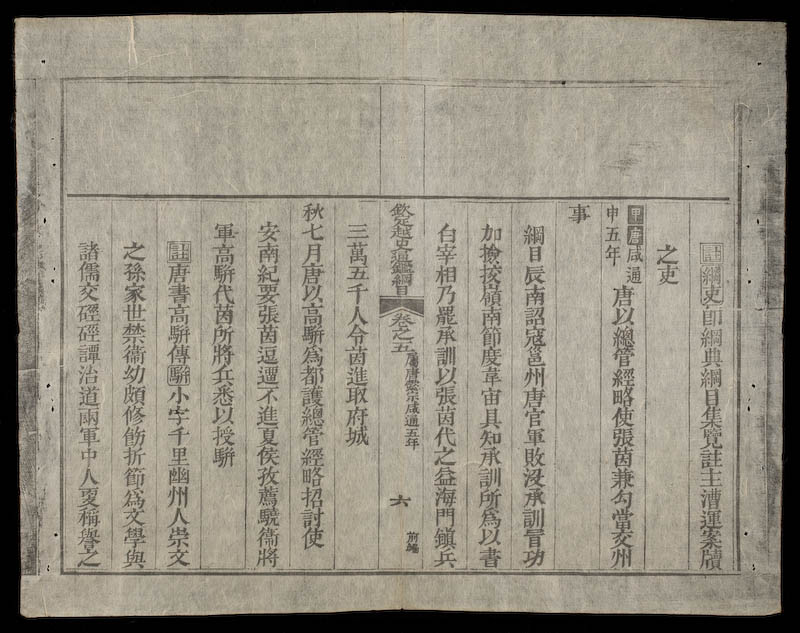 註綱吏即綱典綱目集覽註主漕運案牘
之吏
甲申唐咸通五年唐以總管經略使張茵兼勾當交州
事
綱目辰南詔寇邕州唐官軍敗没承訓冒功
加撿挍嶺南節度韋宙具知承訓所爲以書
白宰相乃罷承訓以張茵代之益海門鎭兵
三萬五千人令茵進取府城
欽定越史通鑑綱目 卷之五 屬唐懿宗咸通五年 六 前編
秋七月唐以高駢爲都護總管經略招討使
安南紀要張茵逗遛不進夏侯孜薦驍衞將
軍高駢代茵所將兵悉以授駢
註唐書高駢傳駢小字千里幽州人崇文
之孫家世禁衞幼頗修飭折節爲文學與
諸儒交硜硜譚治道兩軍中人更稱譽之